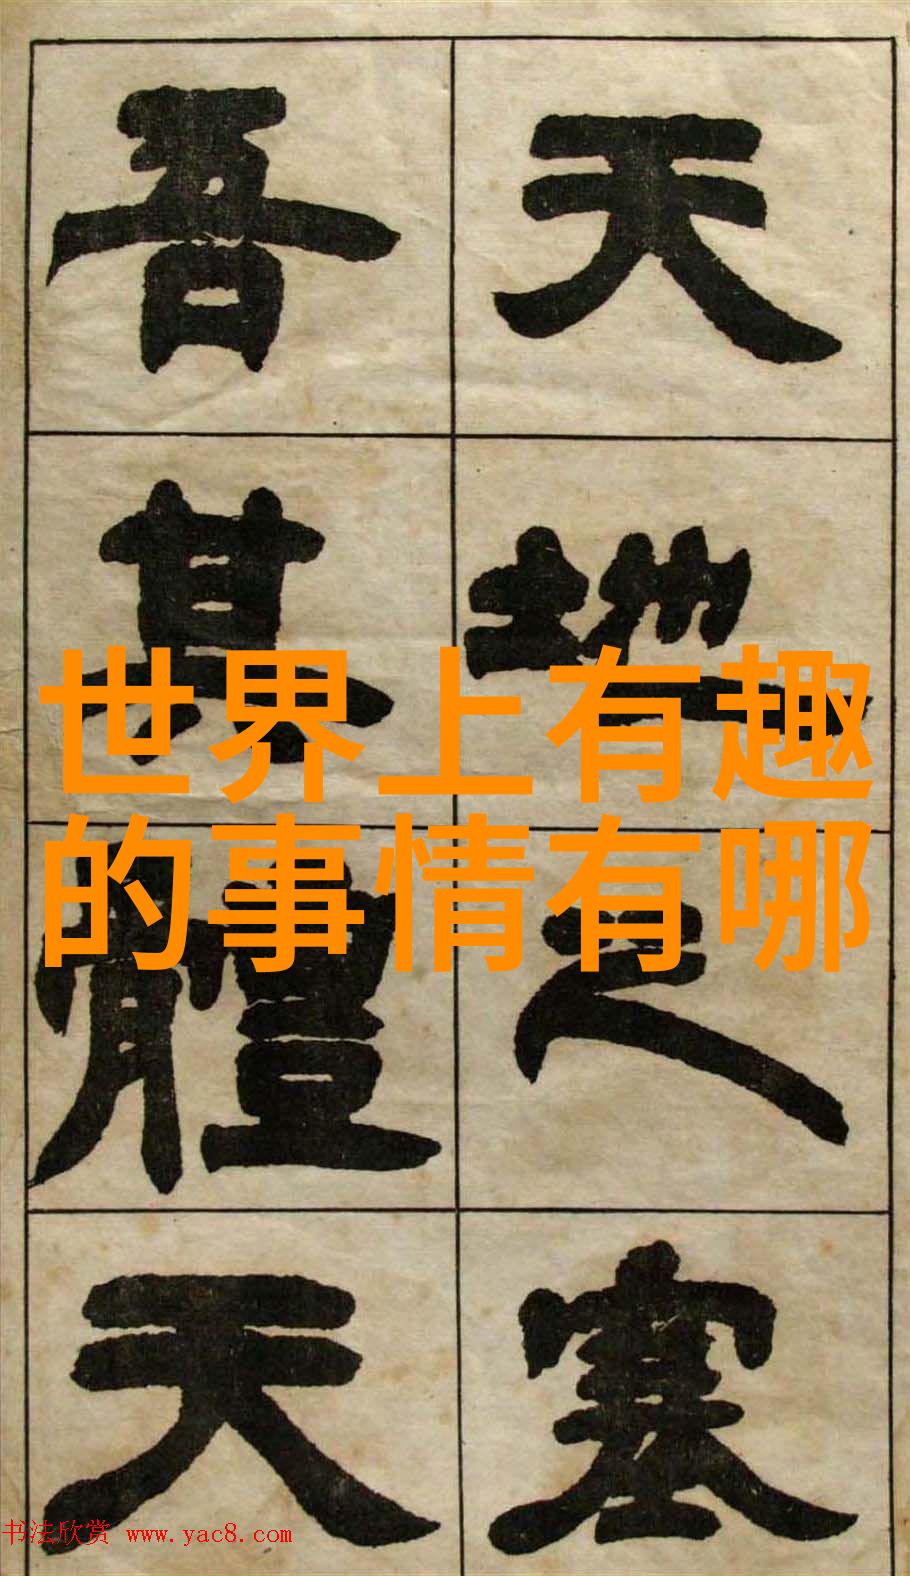 天地之塞
吾其體天
世界上有趣
的事情有哪
书法欣赏 www.yac8.com